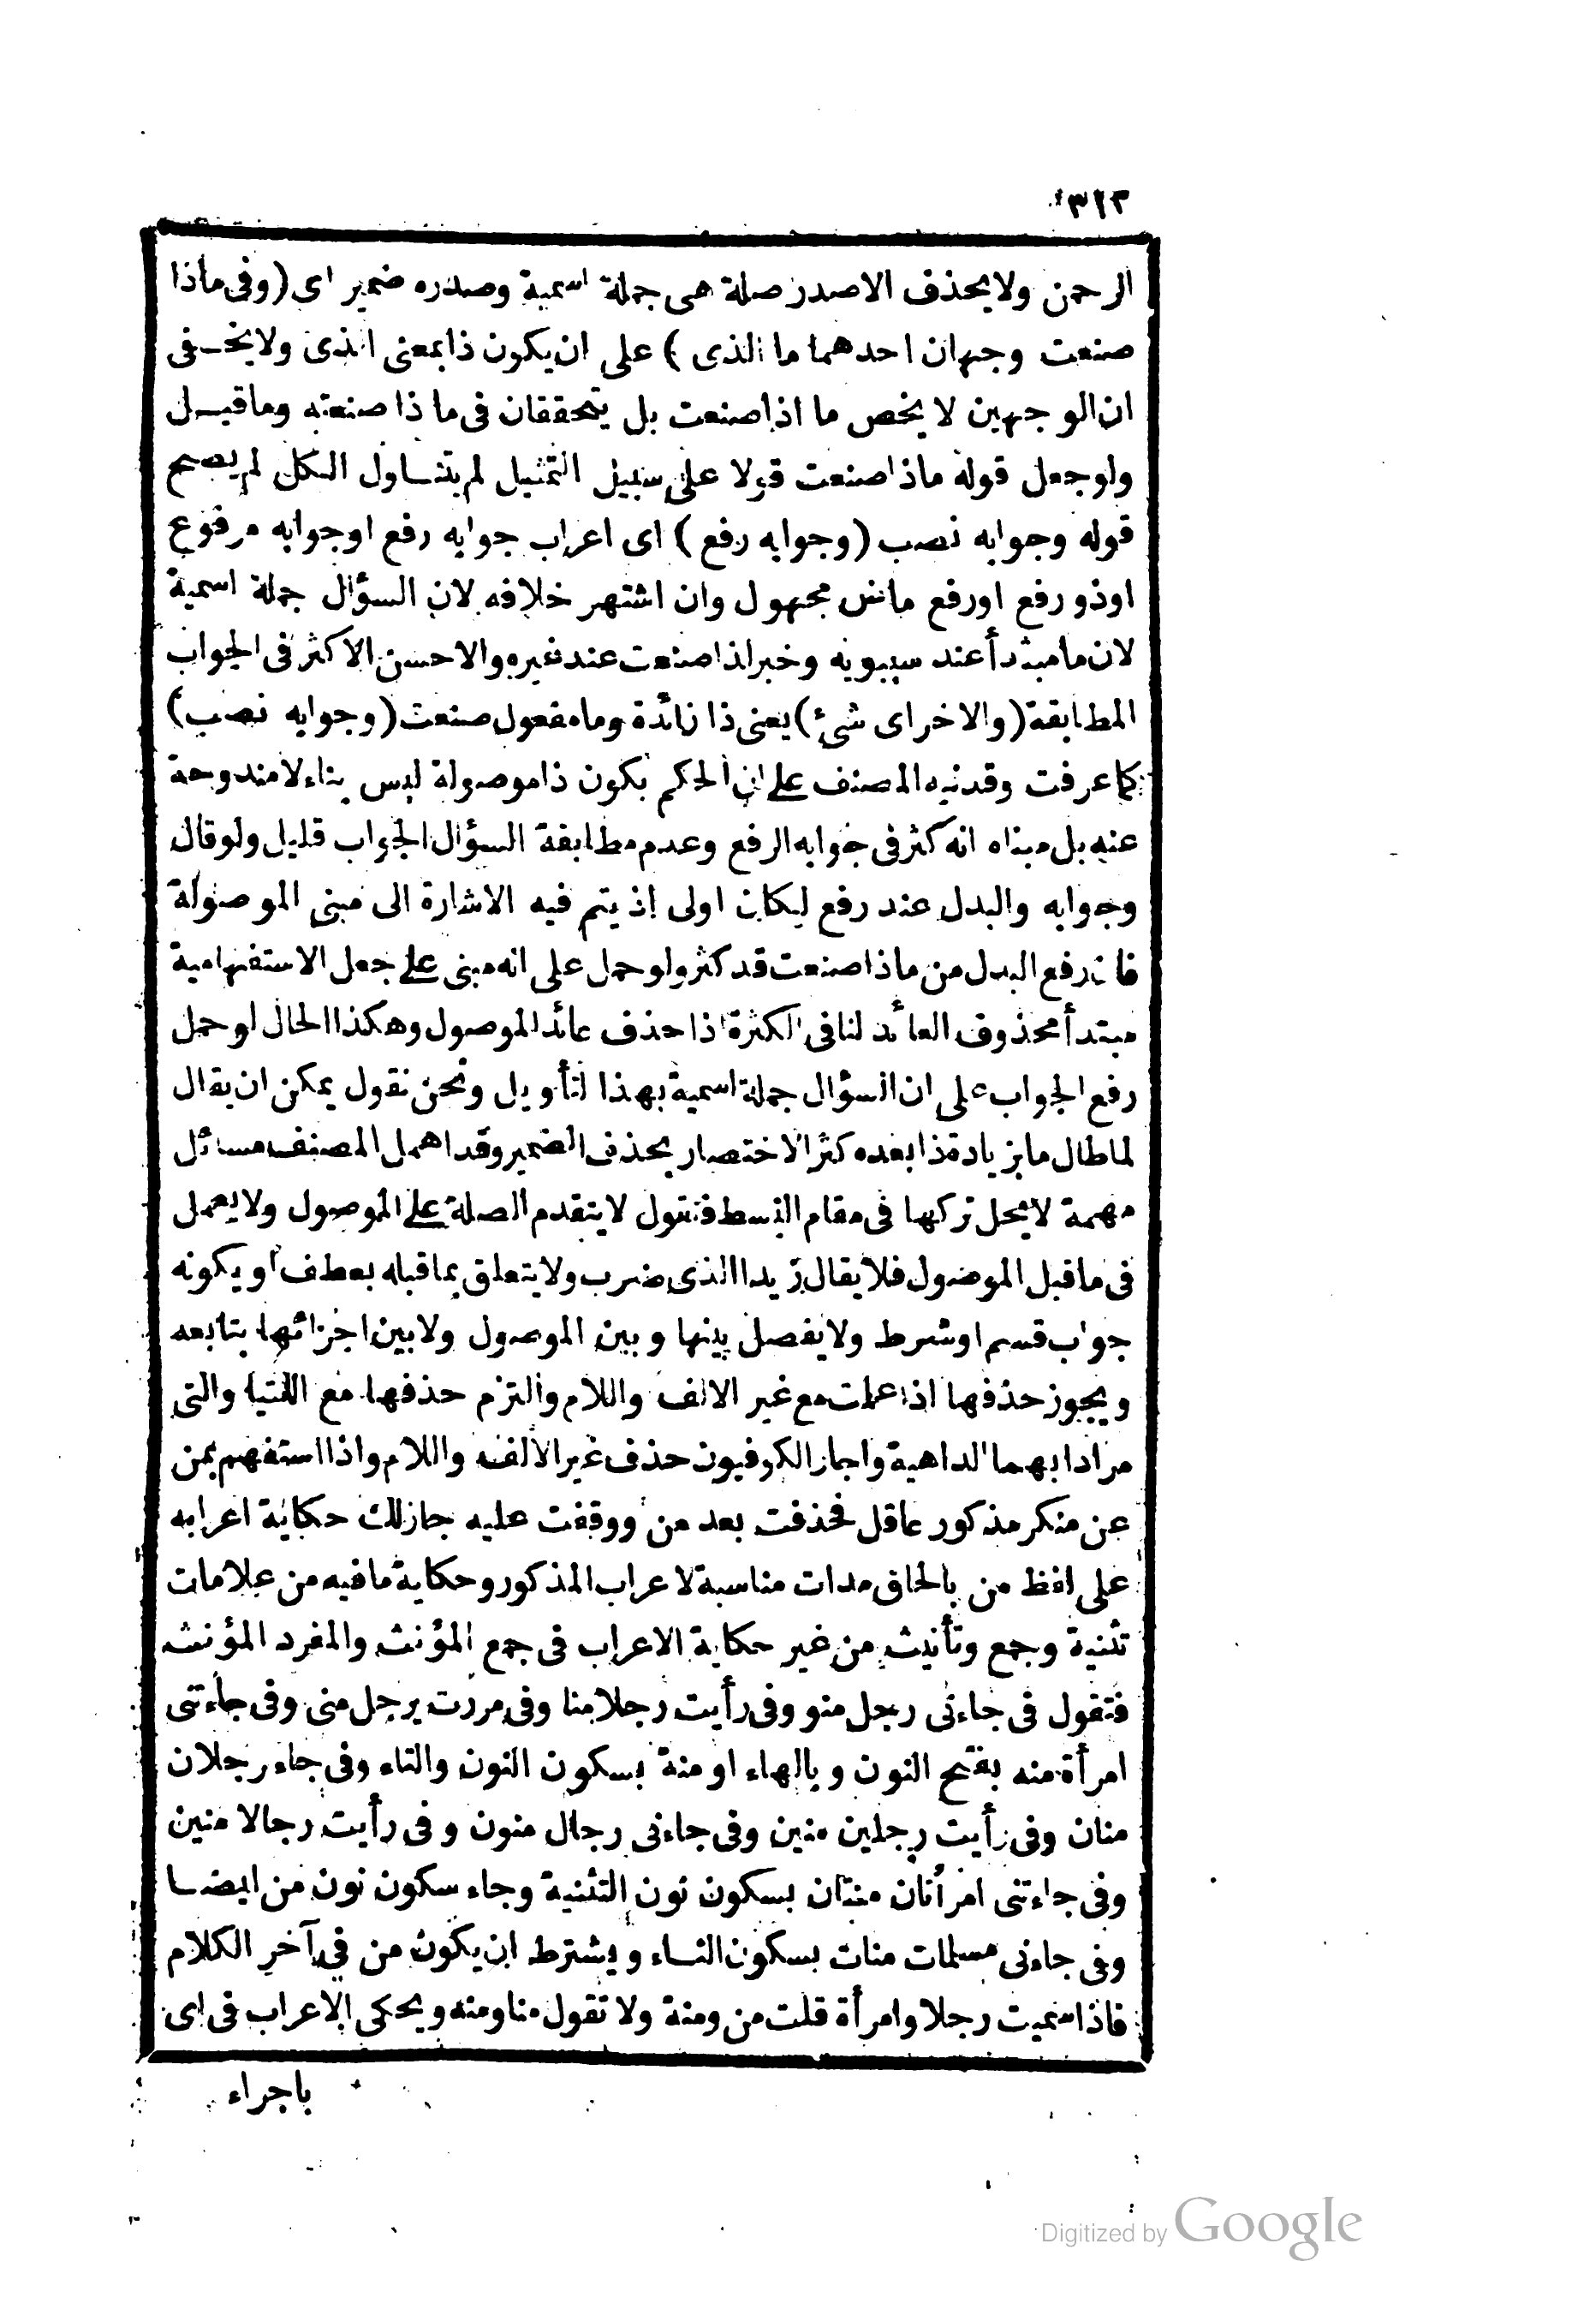 ٣١٣
الرحمن ولا يحذف الاصدر صلة هى جملة اسمية وصدره ضمير اى (وفى ماذا
صنعت وجهان احدهما ما الذى) على ان يكون ذا بمعنى الذى ولا يخفى
ان الوجهين لا يخص ما اذا صنعت بل يتحققان فى ما ذا صنعته وما قيل
ولو جعل قوله ماذا صنعت قولا على سبيل التمثيل لم يتناول الكل لم يصح
قوله وجوابه نصب (وجوابه رفع) اى اعراب جوابه رفع او جوابه مرفوع
اوذو رفع اورفع ماض مجهول وان اشتهر خلافه لان السؤال جملة اسمية
لان ما مبتدأ عند سيبويه وخبر لذا صنعت عند غيره والاحسن الاكثر فى الجواب
المطابقة (والاخر اى شىء) يعنى ذا زائدة وما مفعول صنعت (وجوابه نصب)
كما عرفت وقد نبه المصنف على ان الحكم بكون ذا موصولة ليس بناء لا مندوحة
عنه بل مبناه انه كثر فى جوابه الرفع وعدم مطابقة السؤال الجواب قليل ولو قال
وجوابه والبدل عند رفع لكان اولى اذ يتم فيه الاشارة الى مبنى الموصولة
فان رفع البدل من ماذا صنعت قد كثر ولو حمل على انه مبنى على جعل الاستفهامية
مبتدأ محذوف العائد لنافى الكثرة اذا حذف عائد الموصول وهكذا الحال لو حمل
رفع الجواب على ان السؤال جملة اسمية بهذا التأويل ونحن نقول يمكن ان يقال
لما طال ما بزيادة ذا بعده كثر الاختصار بحذف الضمير وقد اهمل المصنف مسائل
مهمة لا يحل تركها فى مقام البسط فنقول لا يتقدم الصلة على الموصول ولا يعمل
فى ما قبل الموصول فلا يقال زيدا الذى ضرب ولا يتعلق بما قبله بعطف او يكونه
جواب قسم او شرط ولا يفصل بينها وبين الموصول ولا بين اجزائها بتابعه
ويجوز حذفها اذا علمت مع غير الالف واللام والتزم حذفها مع اللتيا والتى
مرادا بهما الداهية واجاز الكوفيون حذف غير الالف واللام واذا استفهم بمن
عن منكر مذكور عاقل فحذفت بعد من ووقفت عليه جاز لك حكاية اعرابه
على لفظ من بالحاق مدات مناسبة لاعراب المذكور وحكاية ما فيه من علامات
تثنية وجمع وتأنيث من غير حكاية الاعراب فى جمع المؤنث والمفرد المؤنث
فتقول فى جاءنى رجل منو وفى رأيت رجلا منا وفى مررت برجل منى وفى جاءتنى
امرأة منه بفتح النون وبالهاء او منة بسكون النون والتاء وفى جاء رجلان
منان وفى رأيت رجلين منين وفى جاءنى رجال منون وفى رأيت رجالا منين
وفى جاءتنى امرأتان منتان بسكون نون التثنية وجاء سكون نون من ايضا
وفى جاءنى مسلمات منات بسكون التاء ويشترط ان يكون من فى آخر الكلام
فاذا سميت رجلا وامرأة قلت من ومنة ولا تقول منا ومنه ويحكى الاعراب فى اى
باجراء
Digitized by Google